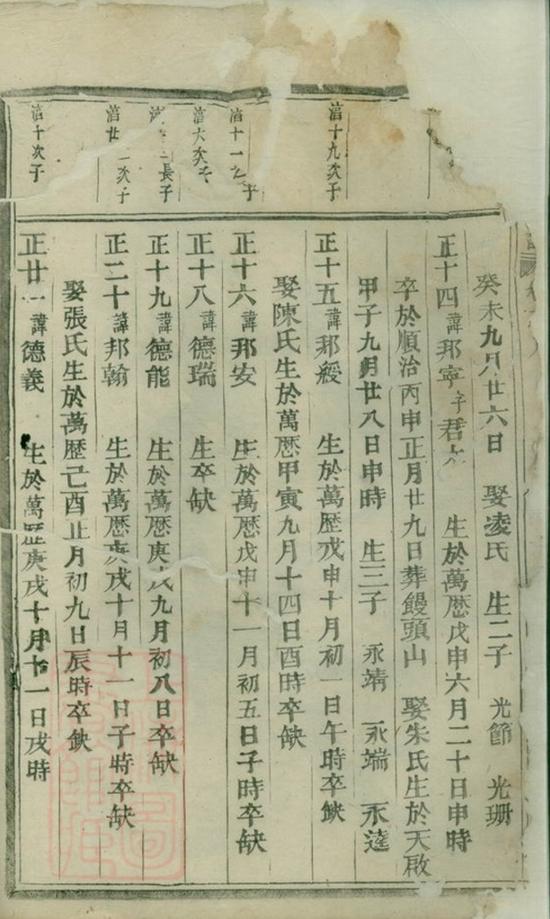 癸未九月廿六日　娶凌氏　生二子　光節　光珊
正十四諱邦寧字君　生於萬厯戊申六月二十日申時
卒於順治丙申正月廿九日葬饅頭山　娶朱氏生於天啟
甲子九月廿八日申時　生三子　永靖　永端　永達
濇十九次子
正十五諱邦綬　生於萬厯戊申十月初一日午時卒缺
娶陳氏生於萬厯甲寅九月十四日酉時卒缺
正十六諱邦安　生於萬厯戊申十一月初五日子時卒缺
正十八諱德瑞　生卒缺
長子
正十九諱德能　生於萬厯庚戌九月初八日卒缺
次子
正二十諱邦翰　生於萬厯庚戌十月十一日子時卒缺
娶張氏生於萬厯己酉正月初九日辰時卒缺
濇十次子
正廿一諱德義　生於萬厯庚戌十月十一日戌時